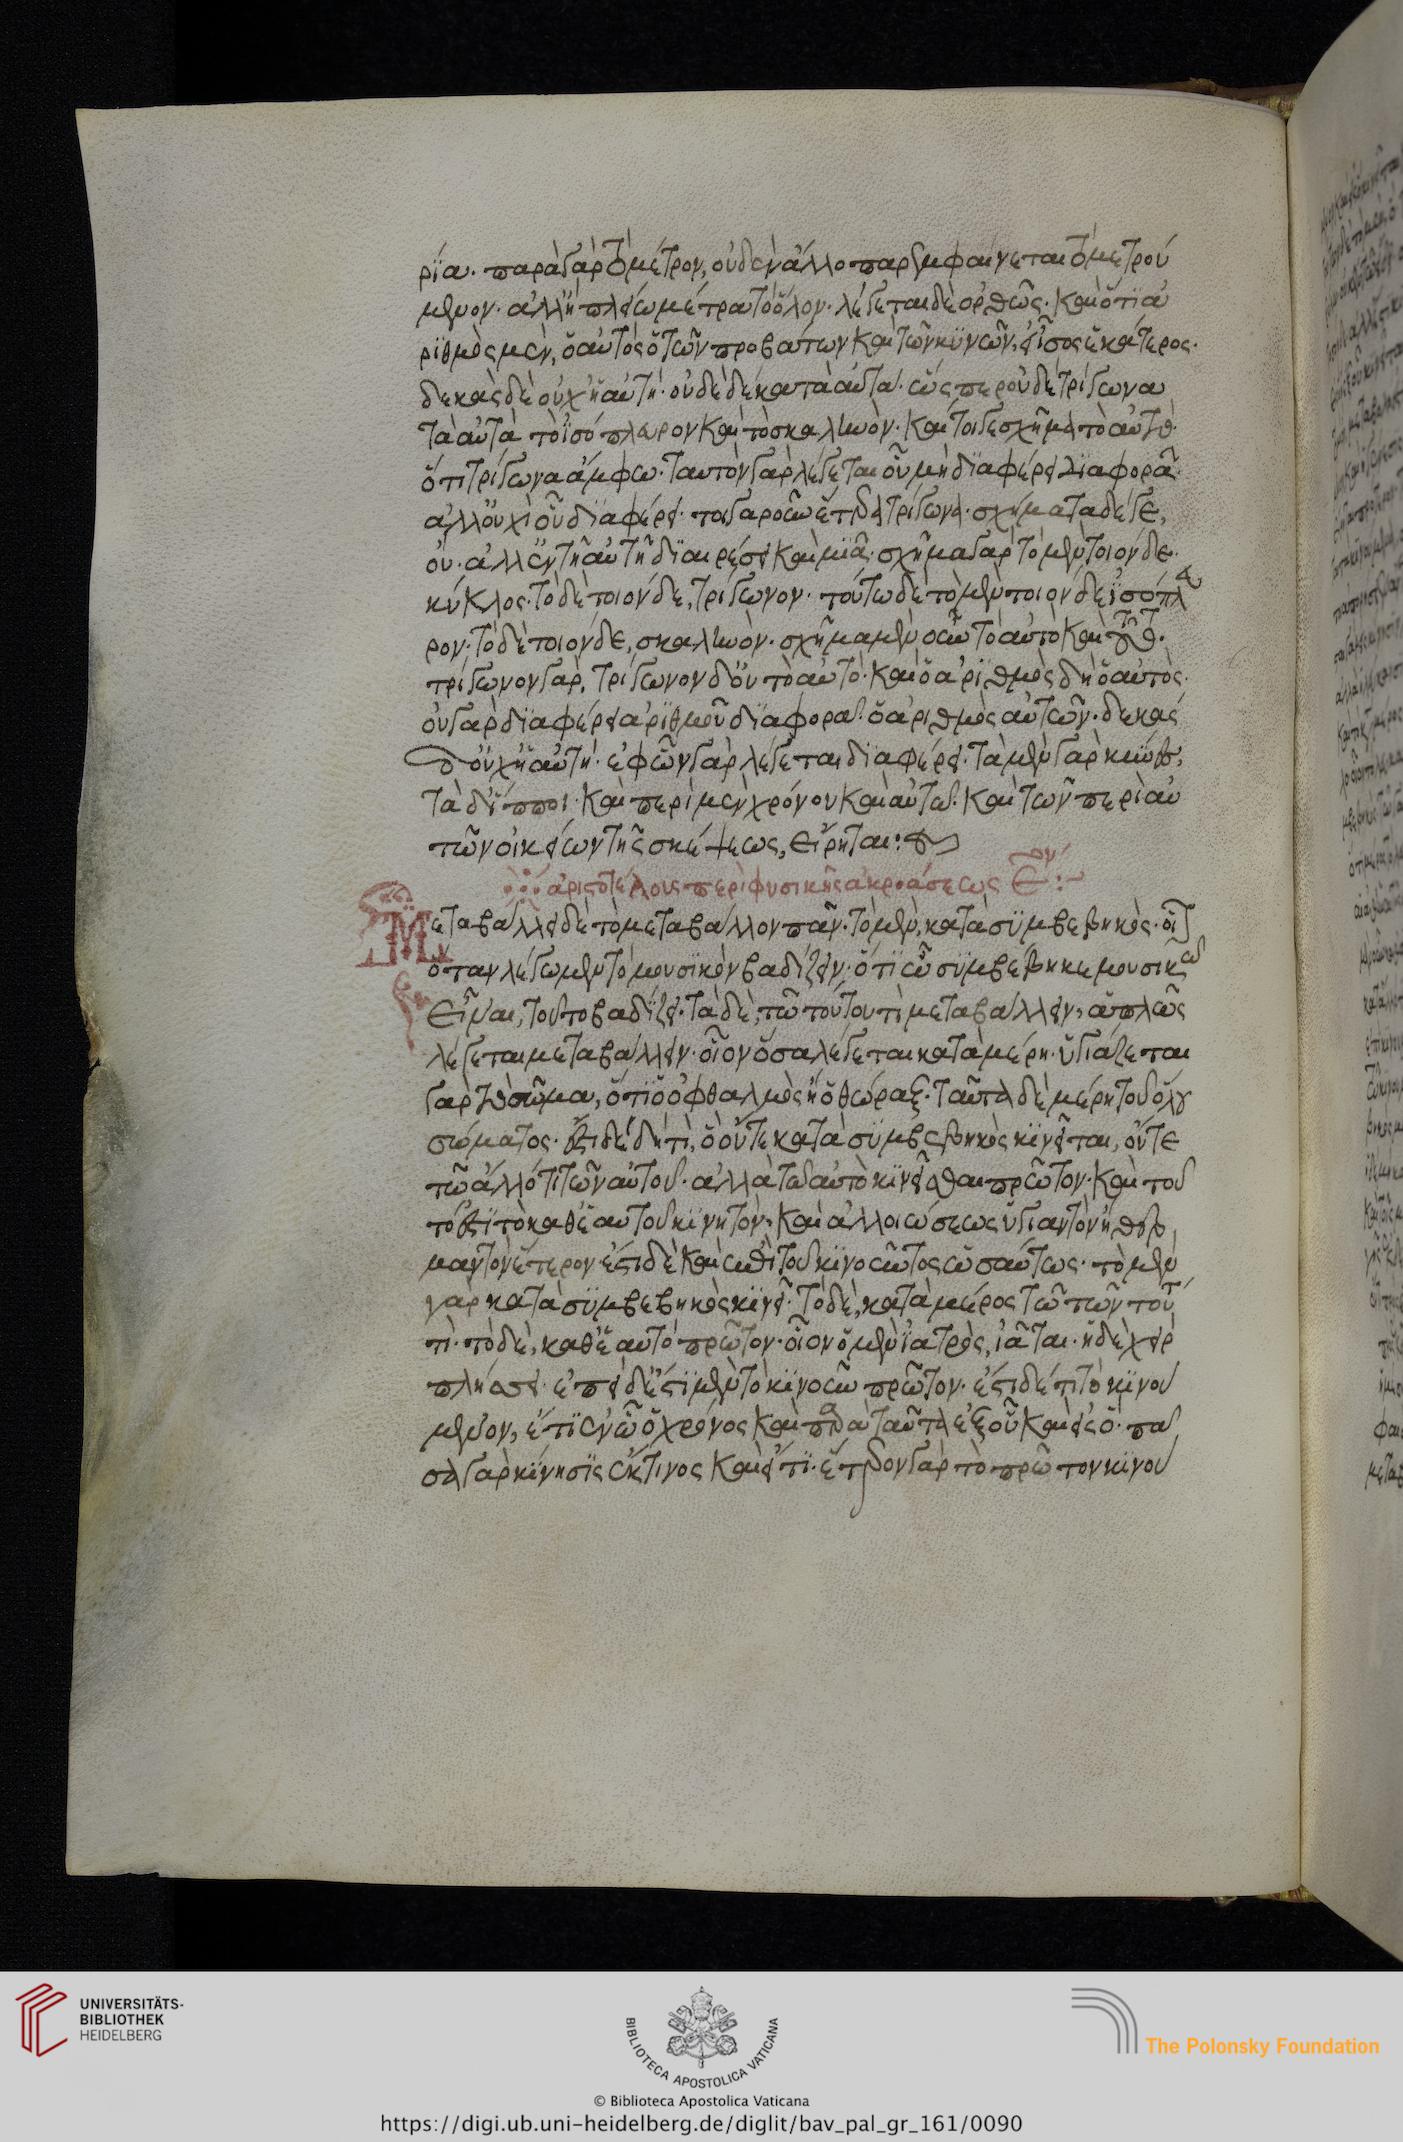 ρία. παρὰ γὰρ τὸ μέτρον, οὐδὲν ἄλλο παρεμφαίνεται τὸ μετρού
μενον. ἀλλ' ἢ πλείω μέτρα τὸ ὅλον. λέγεται δὲ ὀρθῶς. καὶ ὅτι ἀ
ριθμὸς μὲν, ὁ αὐτὸς ὁ τῶν προβάτων καὶ τῶν κυνῶν, εἰ ἴσος ἑκάτερος.
δεκὰς δὲ οὐχ ἡ αὐτή. οὐδὲ δέκα τὰ αὐτά. ὥσπερ οὐδὲ τρίγωνα
τὰ αὐτὰ τὸ ἰσόπλευρον καὶ τὸ σκαληνὸν. καίτοιγε σχῆμα τὸ αὐτὸ
ὅτι τρίγωνα ἄμφω. ταυτὸν γὰρ λέγεται οὗ μὴ διαφέρει διαφορᾶ
ἀλλ' οὐχὶ οὗ διαφέρει. τρίγωνα. σχήματα δέ γε,
οὐ. ἀλλ' ἐν τῇ αὐτῇ διαιρέσει καὶ μιᾷ. σχῆμα γὰρ τὸ μὲν τοιόνδε
κύκλος. τὸ δὲ τοιόνδε, τρίγωνον. τούτου δὲ τὸ μὲν τοιόνδε ἰσόπλευ
ρον. τὸ δὲ τοιόνδε, σκαληνὸν. σχῆμα μὲν οὖν τὸ αὐτὸ καὶ τοῦτο.
τρίγωνον γὰρ. τρίγωνον δ' οὐ τὸ αὐτό. καὶ ὁ ἀριθμὸς δὴ ὁ αὐτὸς.
οὐ γὰρ διαφέρει ἀριθμοῦ διαφορᾷ. ὁ ἀριθμὸς αὐτῶν. δεκὰς
δ' οὐχ ἡ αὐτή. ἐφ' ὧν γὰρ λέγεται διαφέρει. τὰ μὲν γὰρ κύνες,
τὰ δ' ἵπποι. καὶ περὶ μὲν χρόνου καὶ αὐτοῦ. καὶ τῶν περὶ αὐ
τῶν οἰκείων τῆς σκέψεως, εἴρηται:
ἀριστοτέλους περὶ φυσικῆς ἀκροάσεως Ε:
Μεταβάλλει δὲ τὸ μεταβάλλον πᾶν. τὸ μὲν, κατὰ συμβεβηκὸς. οἷον
ὅταν λέγωμεν τὸ μουσικὸν βαδίζειν. ὅτι ᾧ συμβέβηκε μουσικῷ
εἶναι, τοῦτο βαδίζει. τὰ δὲ, τῷ τούτου τι μεταβάλλειν, ἁπλῶς
λέγεται μεταβάλλειν. οἷον ὅσα λέγεται κατὰ μέρη. ὑγιάζεται
γὰρ τὸ σῶμα, ὅτι ὁ ὀφθαλμὸς ἢ ὁ θώραξ. ταῦτα δὲ μέρη τοῦ ὅλου
σώματος. ἔστι δὲ δή τι, ὃ οὔτε κατὰ συμβεβηκὸς κινεῖται, οὔτε
τῷ ἄλλό τι τῶν αὐτοῦ. ἀλλὰ τῷ αὐτὸ κινεῖσθαι πρῶτον. καὶ τοῦ
τό ἐστι τὸ καθ' ἑαυτοῦ κινητόν, καὶ ἀλλοιώσεως ὑγιαντὸν ἢ θερ
μαντὸν ἕτερον ἔστι δὲ καὶ ἐπὶ τοῦ κινοῦντος ὡσαύτως. τὸ μὲν
γὰρ κατὰ συμβεβηκὸς κινεῖ. τὸ δὲ, κατὰ μέρος τῷ τῶν τού
τι. τὸ δὲ, καθ' ἑαυτὸ πρῶτον. οἷον ὁ μὲν ἰατρὸς, ἰᾶται. ἡ δὲ χεὶρ
πλήσσει. ἐπεὶ δ' ἔστι μὲν τὸ κινοῦν πρῶτον. ἔστι δέ τι τὸ κινού
μενον, ἔτι ἐν ᾧ ὁ χρόνος καὶ παρὰ ταῦτα ἐξ οὗ καὶ εἰς ὅ. πᾶ
σα γὰρ κίνησις ἔκ τινος καὶ εἴς τι. ἕτερον γὰρ τὸ πρῶτον κινού
UNIVERSITÄTS-
BIBLIOTHEK
HEIDELBERG
BIBLIOTECA APOSTOLICA VATICANA
The Polonsky Foundation
© Biblioteca Apostolica Vaticana
https://digi.ub.uni-heidelberg.de/diglit/bav_pal_gr_161/0090